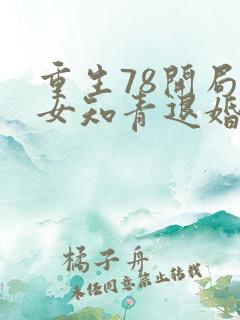 重生78開局
女知青退婚
橘子舟
未任同意禁止转载